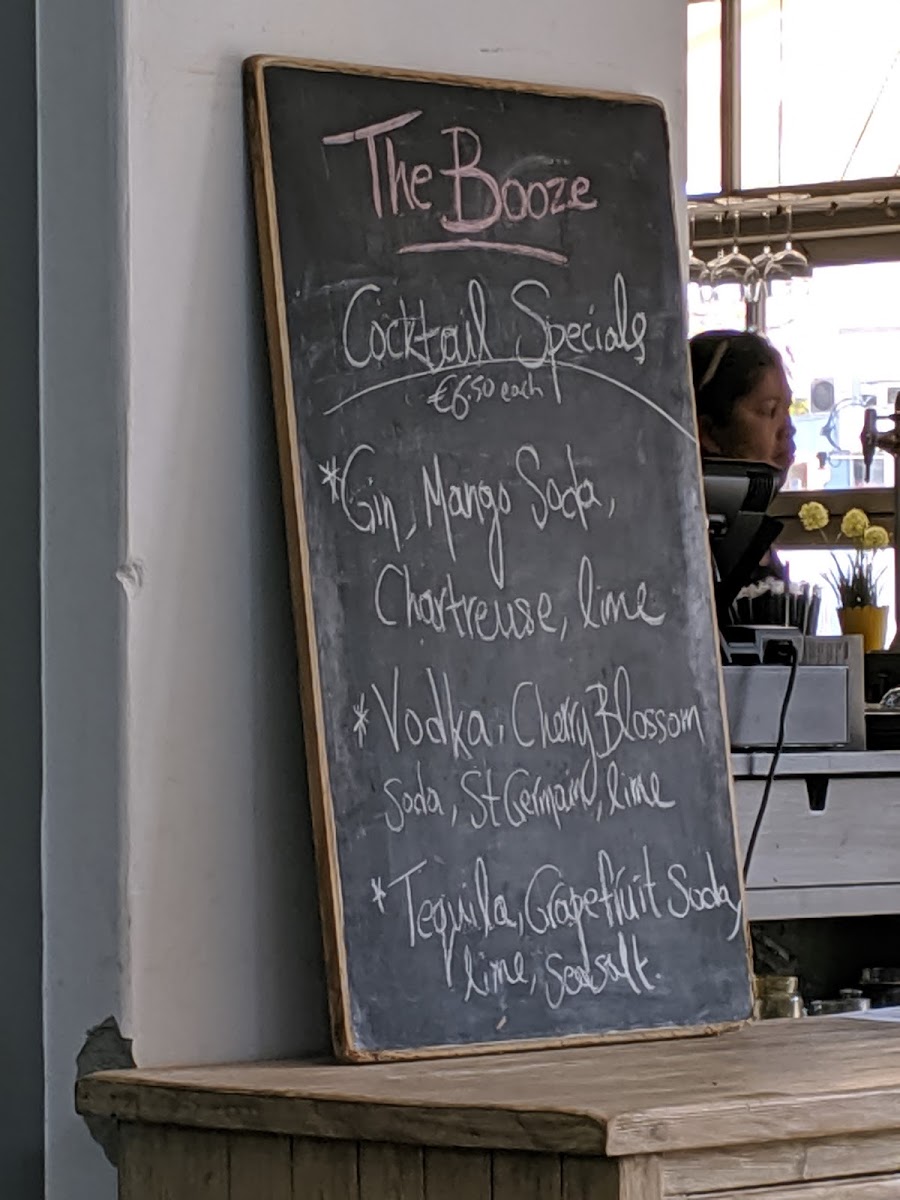 The Booze
Cocktail Specials
€6.50 each
*Gin, Mango Soda,
Chartreuse, lime
*Vodka, Cherry Blossom
Soda, St Germain, lime
*Tequila, Grapefruit Soda,
lime, seasalt.